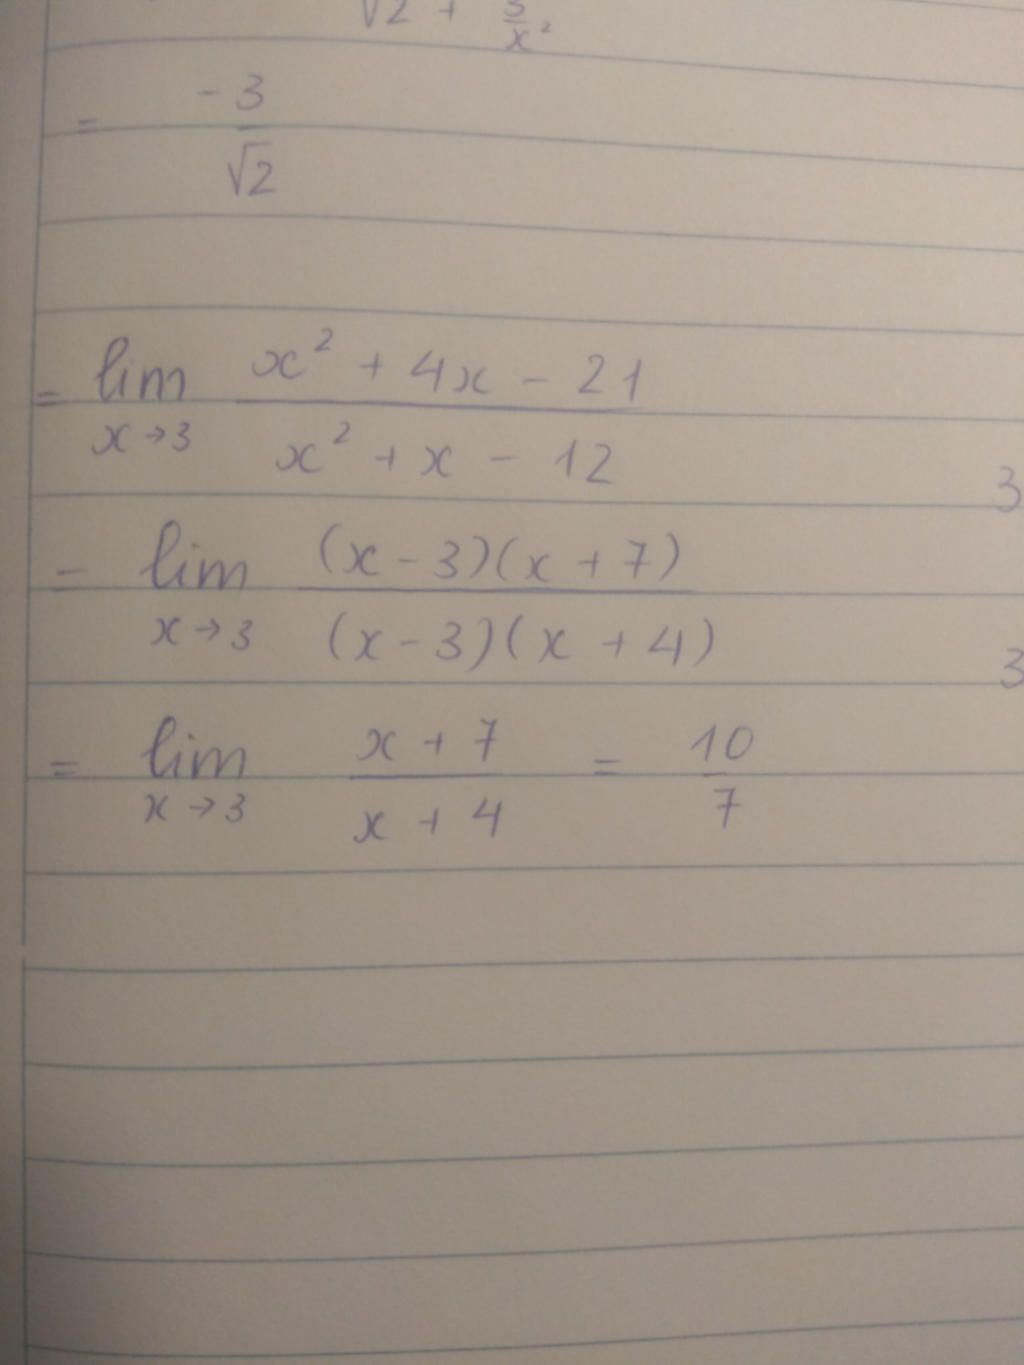 √2 + 3/x²
= -3/√2
= lim x→3 (x² + 4x - 21)/(x² + x - 12)
3
= lim x→3 ((x - 3)(x + 7))/((x - 3)(x + 4))
3
= lim x→3 (x + 7)/(x + 4) = 10/7